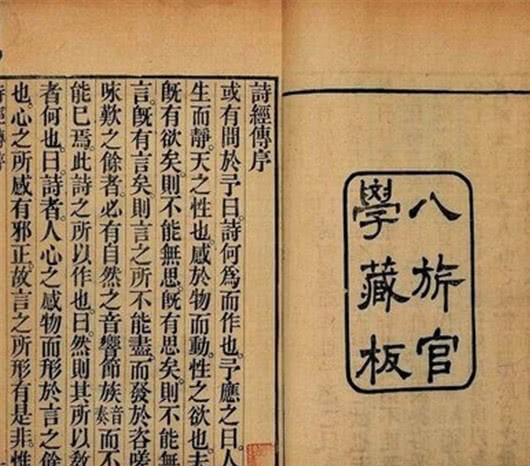 八旂官
學藏板
詩經傳序
或有問於予曰。詩何為而作也。予應之曰。人
生而靜。天之性也。感於物而動。性之欲也。
既有欲矣。則不能無思。既有思矣。則不能
言。既有言矣。則言之所不能盡。而發於咨嗟
咏歎之餘者。必有自然之音響節族音奏而不
能已焉。此詩之所以作也。曰。然則其所以教
者何也。曰。詩者。人心之感物而形於言之餘
也。心之所感有邪正。故言之所形有是非。惟